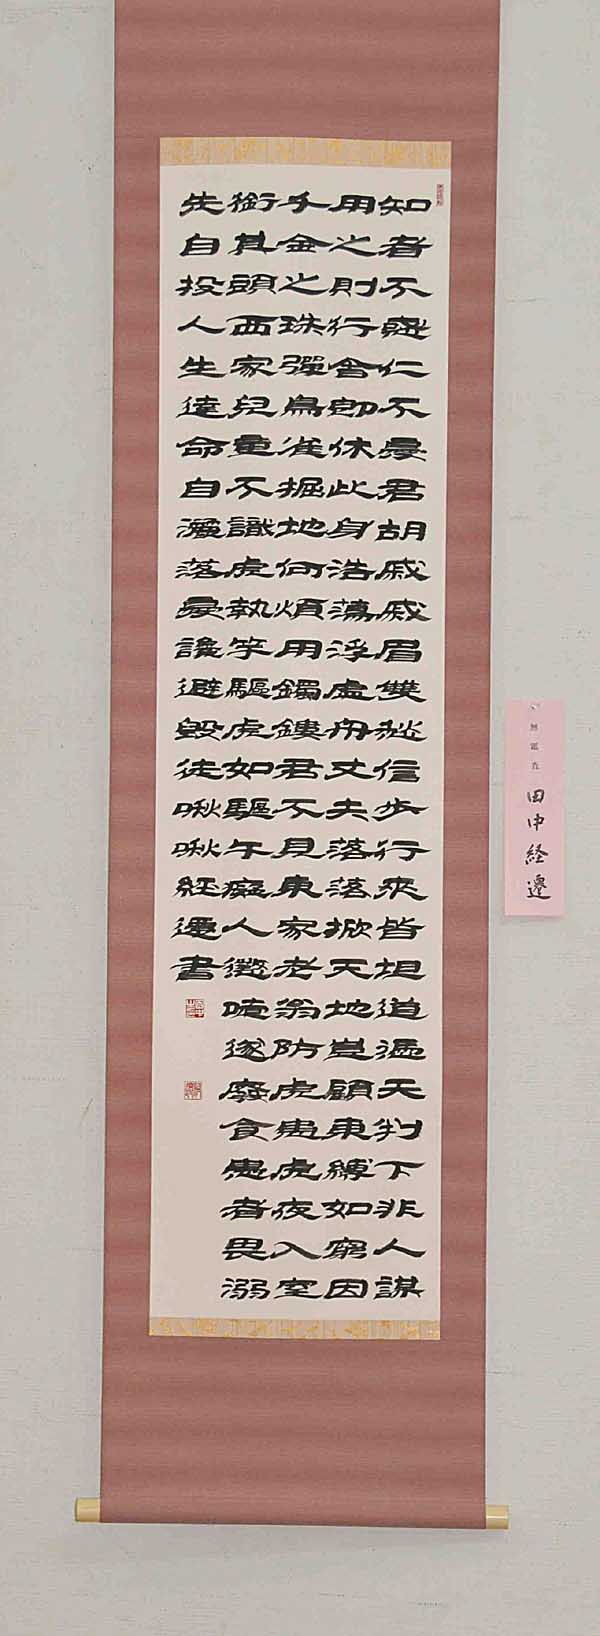 知者不惑仁不憂君胡戚戚眉雙愁信步行來皆坦道憑天判下非人謀
用之則行舍即休此身浩蕩浮虛舟丈夫落落掀天地豈顧束縛如窮囚
千金之珠彈鳥雀掘地何煩用鐲鏤君不見東家老翁防虎患虎夜入室
銜其頭西家兒童不識虎執竿驅虎如驅牛癡人懲噎遂廢食愚者畏溺
先自投人生達命自灑落憂讒避毀徒啾啾經遷書
無鑑査
田中経遷